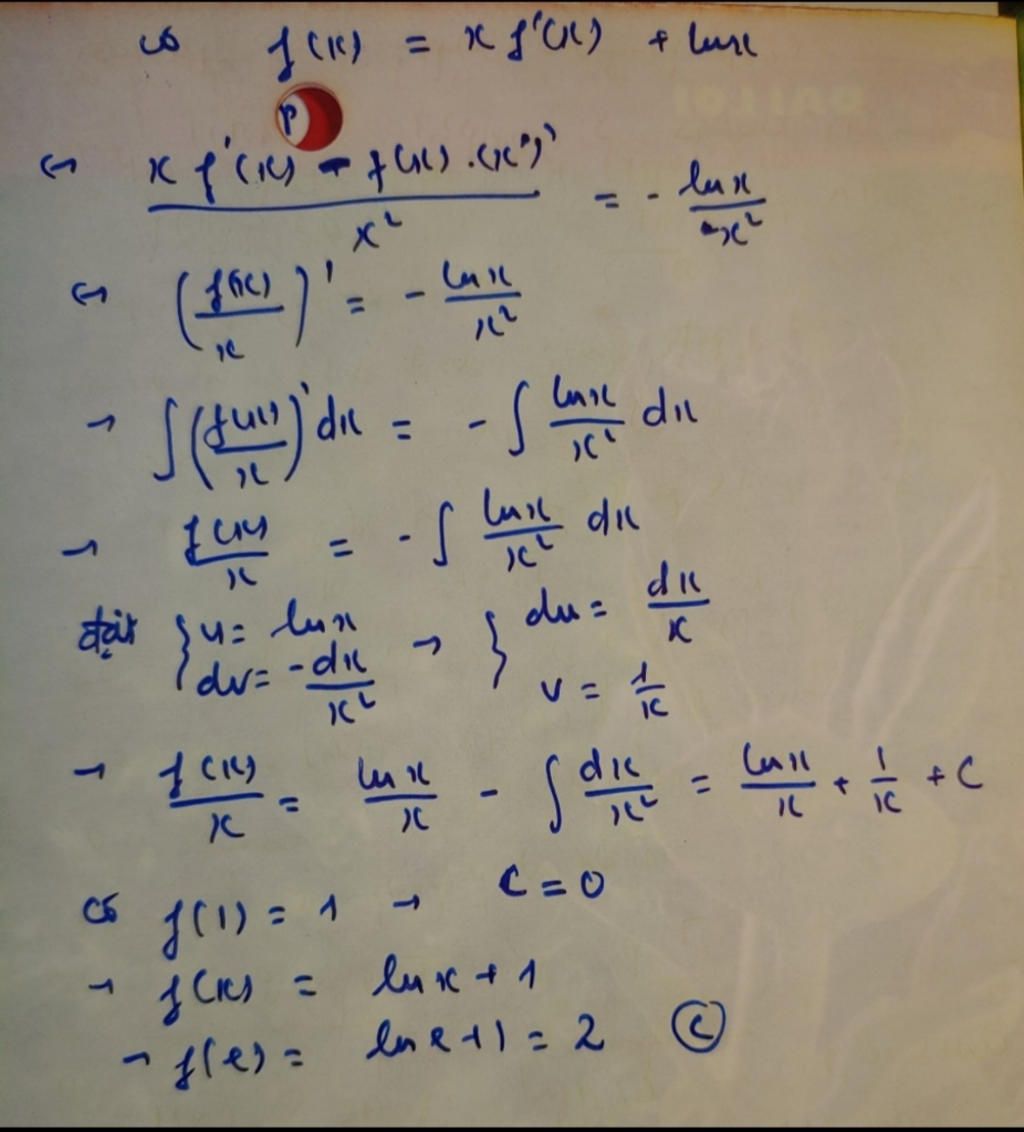 có f(x) = x f'(x) + lnx
P
↔ x f'(x) - f(x) .(x)' / x² = - lnx / x²
↔ (f(x)/x)' = - lnx/x²
→ ∫(f(x)/x)' dx = - ∫ lnx/x² dx
→ f(x)/x = - ∫ lnx/x² dx
đặt { u = lnx → } du = dx/x
dv = -dx/x² v = 1/x
→ f(x)/x = lnx/x - ∫ dx/x² = lnx/x + 1/x + C
có f(1) = 1 → C = 0
→ f(x) = lnx + 1
→ f(e) = ln e + 1 = 2 Ⓒ